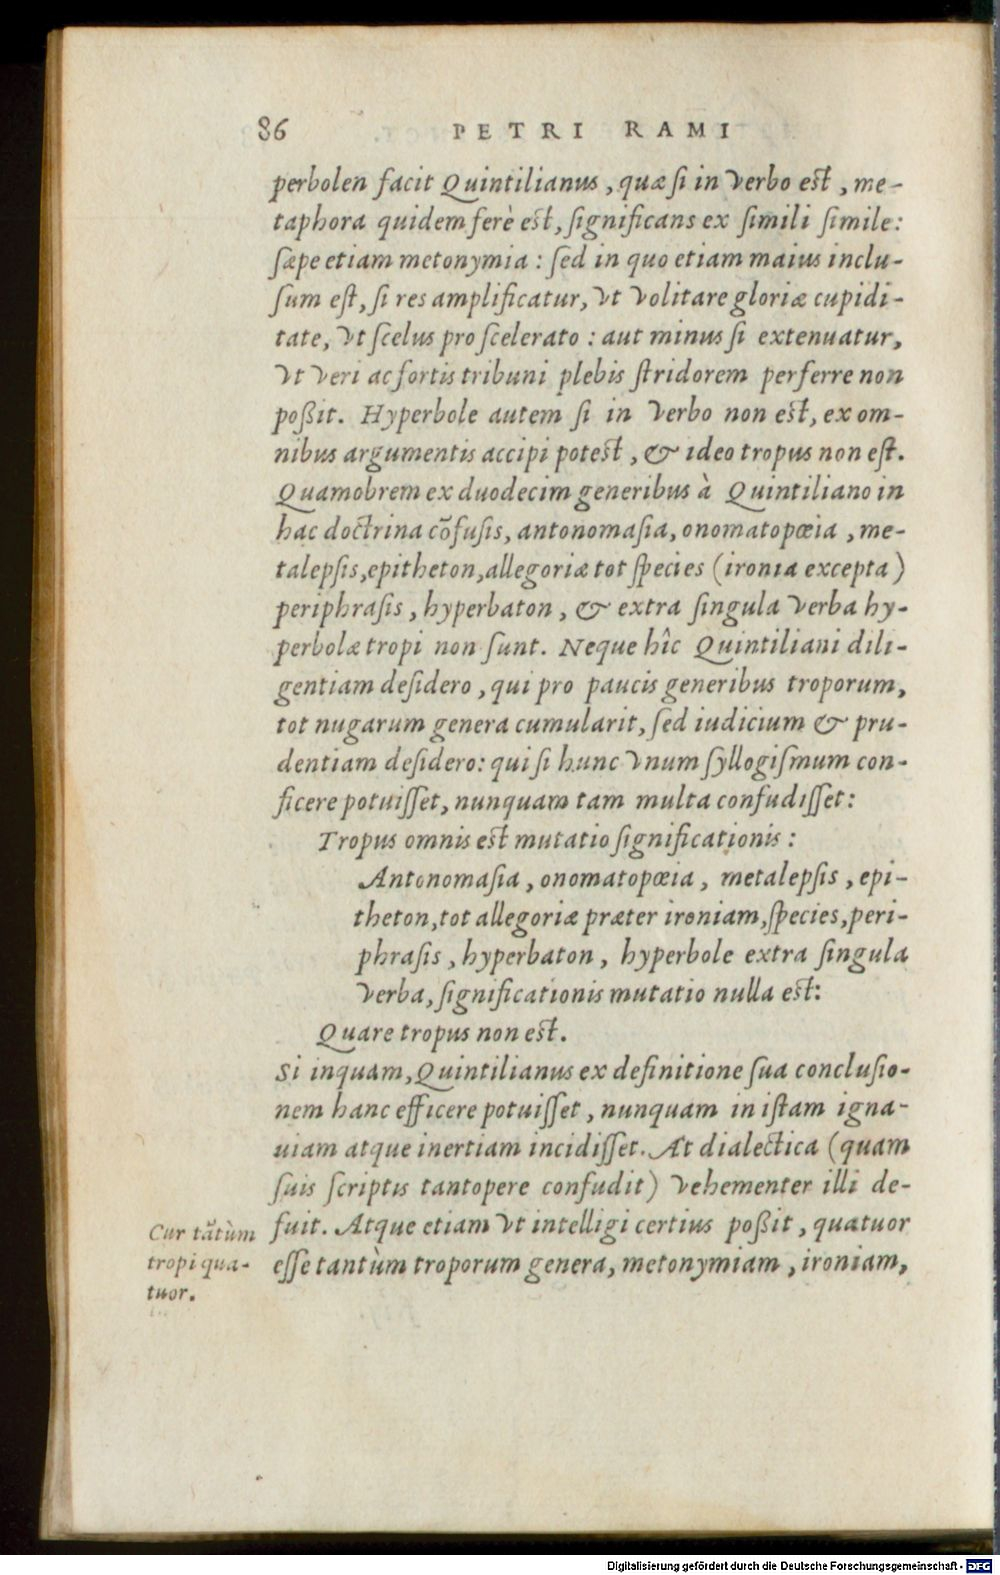 86 PETRI RAMI
perbolen facit Quintilianus, quæ si in verbo est, me-
taphora quidem ferè est, significans ex simili simile:
sæpe etiam metonymia: sed in quo etiam maius inclu-
sum est, si res amplificatur, vt volitare gloriæ cupidi-
tate, vt scelus pro scelerato: aut minus si extenuatur,
vt veri ac fortis tribuni plebis stridorem perferre non
poßit. Hyperbole autem si in verbo non est, ex om-
nibus argumentis accipi potest, & ideo tropus non est.
Quamobrem ex duodecim generibus à Quintiliano in
hac doctrina cõfusis, antonomasia, onomatopœia, me-
talepsis, epitheton, allegoriæ tot species (ironia excepta)
periphrasis, hyperbaton, & extra singula verba hy-
perbolæ tropi non sunt. Neque hîc Quintiliani dili-
gentiam desidero, qui pro paucis generibus troporum,
tot nugarum genera cumularit, sed iudicium & pru-
dentiam desidero: qui si hunc vnum syllogismum con-
ficere potuisset, nunquam tam multa confudisset:
Tropus omnis est mutatio significationis:
Antonomasia, onomatopœia, metalepsis, epi-
theton, tot allegoriæ præter ironiam, species, peri-
phrasis, hyperbaton, hyperbole extra singula
verba, significationis mutatio nulla est:
Quare tropus non est.
Si inquam, Quintilianus ex definitione sua conclusio-
nem hanc efficere potuisset, nunquam in istam igna-
uiam atque inertiam incidisset. At dialectica (quam
suis scriptis tantopere confudit) vehementer illi de-
fuit. Atque etiam vt intelligi certius poßit, quatuor
esse tantùm troporum genera, metonymiam, ironiam,
Cur tãtùm
tropi qua-
tuor.
Digitalisierung gefördert durch die Deutsche Forschungsgemeinschaft - DFG